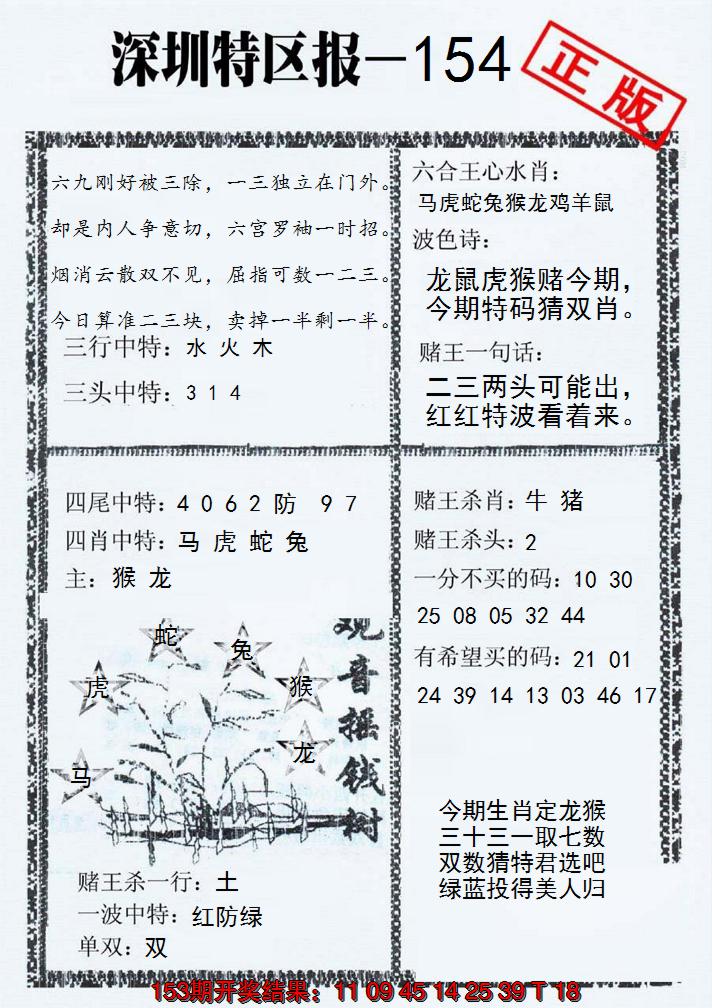 深圳特区报－154
正版
六九刚好被三除，一三独立在门外。
却是内人争意切，六宫罗袖一时招。
烟消云散双不见，屈指可数一二三。
今日算准二三块，卖掉一半剩一半。
三行中特：水 火 木
三头中特：3 1 4
六合王心水肖：
马虎蛇兔猴龙鸡羊鼠
波色诗：
龙鼠虎猴赌今期，
今期特码猜双肖。
赌王一句话：
二三两头可能出，
红红特波看着来。
四尾中特：4 0 6 2 防 9 7
四肖中特：马 虎 蛇 兔
主：猴 龙
蛇
兔
虎
猴
龙
马
观音摇钱树
赌王杀一行：土
一波中特：红防绿
单双：双
赌王杀肖：牛 猪
赌王杀头：2
一分不买的码：10 30
25 08 05 32 44
有希望买的码：21 01
24 39 14 13 03 46 17
今期生肖定龙猴
三十三一取七数
双数猜特君选吧
绿蓝投得美人归
153期开奖结果：11 09 45 14 25 39 T 18